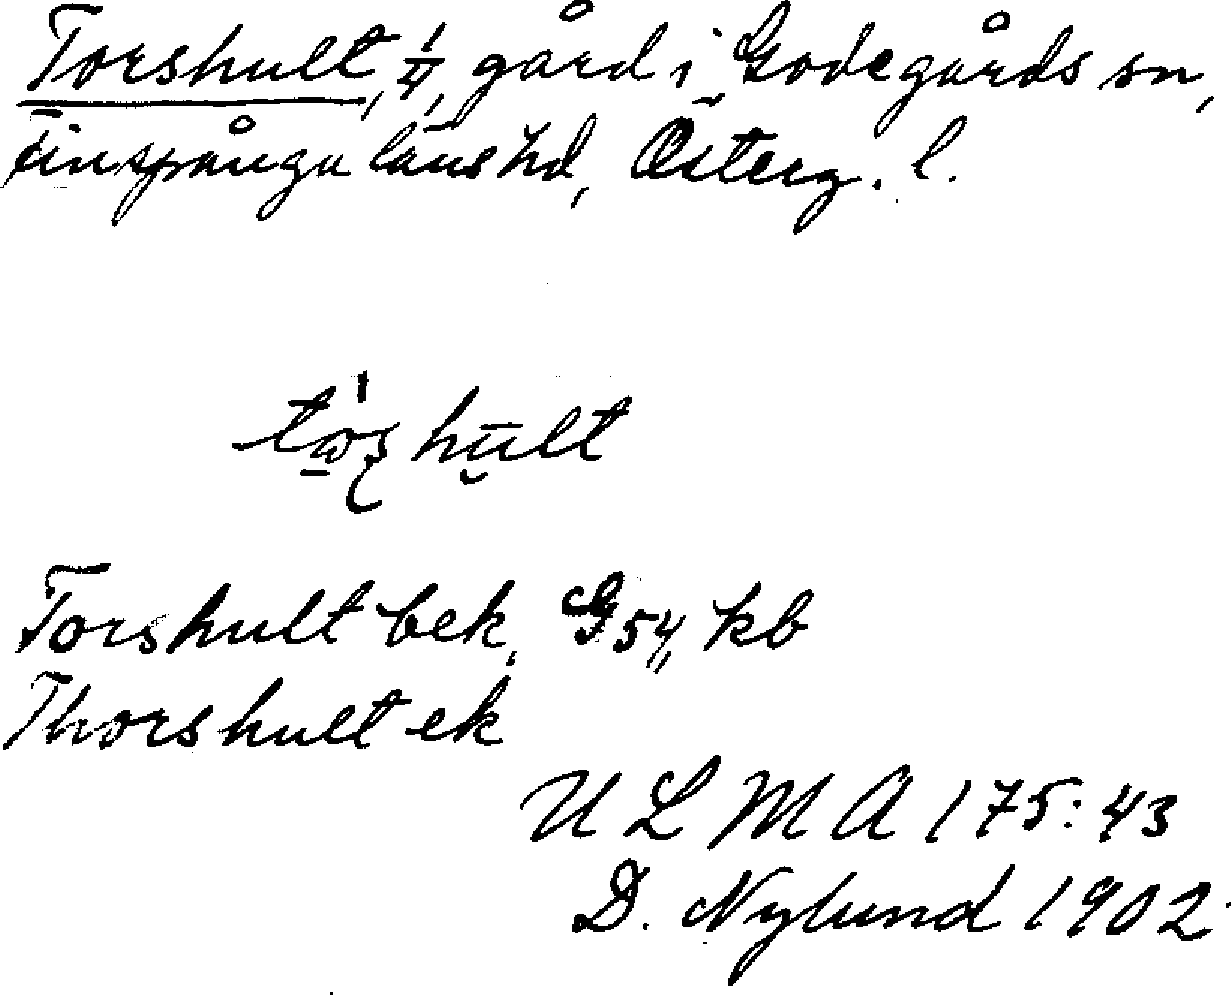 Torshult, 1/4, gård i Godegårds sn,
Finspånga läns hd, Österg. l.
Torshult bek. G 54 kb
Thorshult ek
U L M A 175:43
D. Nylund 1902